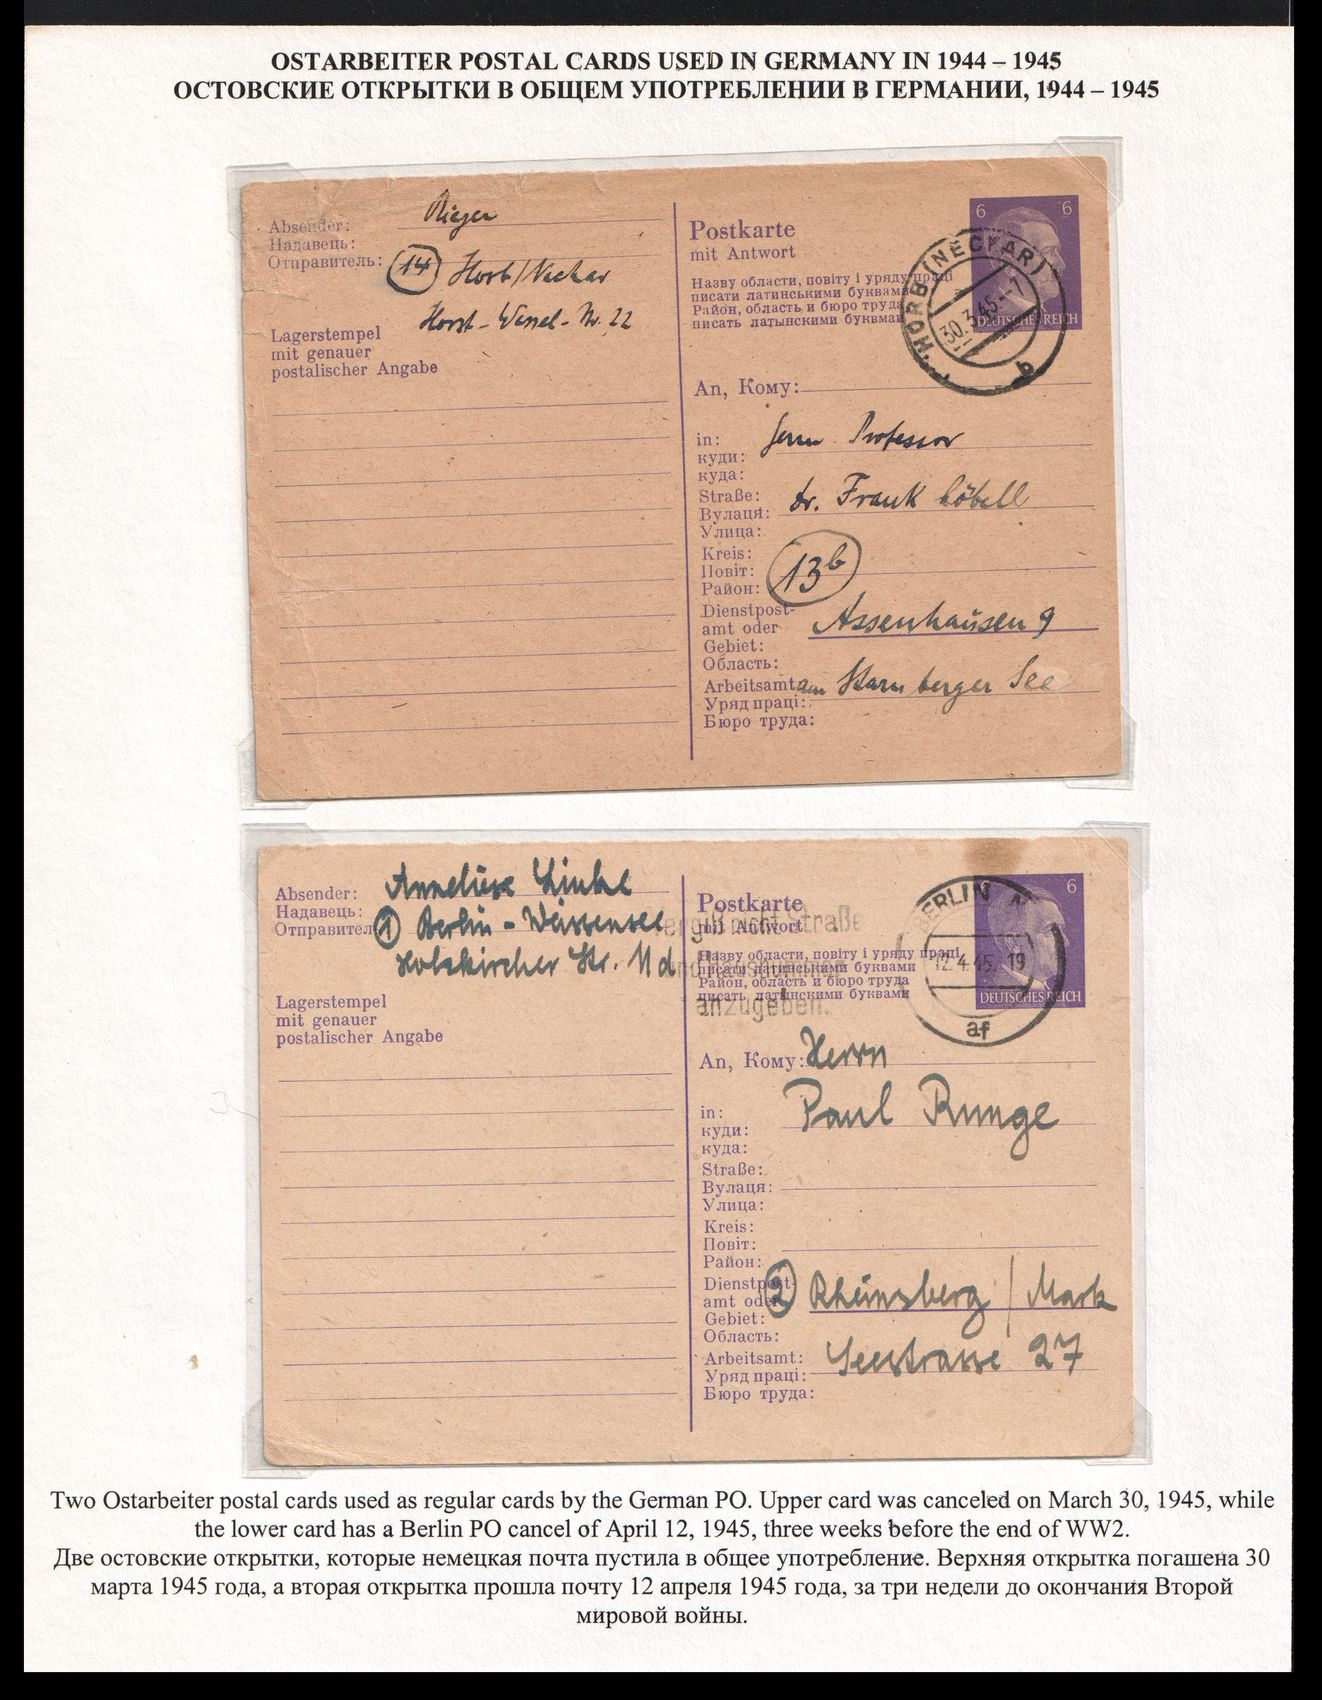 OSTARBEITER POSTAL CARDS USED IN GERMANY IN 1944 – 1945
ОСТОВСКИЕ ОТКРЫТКИ В ОБЩЕМ УПОТРЕБЛЕНИИ В ГЕРМАНИИ, 1944 – 1945
Absender: Rieger
Надавець:
Отправитель: 14 Horb/Neckar
Horst-Wessel- 22
Lagerstempel
mit genauer
postalischer Angabe
Postkarte
mit Antwort
Назву области, повіту і уряду праці
писати латинськими буквами
Район, область и бюро труда
писать латынскими буквмаи
6 6
DEUTSCHES REICH
HORB (NECKAR)
30.3.45.-7
b
An, Кому:
in: Herrn Professor
куди:
куда:
Straße: Dr. Frank Löbell
Вулаця:
Улица:
Kreis:
Повіт: 13b
Район:
Dienstpost-
amt oder Assenhausen 9
Gebiet:
Область:
Arbeitsamt: am Starnberger See
Уряд праці:
Бюро труда:
Absender: Anneliese Linke
Надавець:
Отправител 1 Berlin - Weissensee
Holzkircher Str. 11 d
Lagerstempel
mit genauer
postalischer Angabe
Postkarte
mit Antwort
Назву области, повіту і уряду праці
писати латинськими буквами
Район, область и бюро труда
писать латынскими буквами
Vergiß nicht Straße
und Hausnummer
anzugeben.
6
DEUTSCHES REICH
BERLIN N
12.4.45. 19
af
An, Кому: Herrn
in: Paul Runge
куди:
куда:
Straße:
Вулаця:
Улица:
Kreis:
Повіт:
Район:
Dienstpost-
amt oder 2 Rheinsberg / Mark
Gebiet:
Область:
Arbeitsamt: Seestrasse 27
Уряд праці:
Бюро труда:
Two Ostarbeiter postal cards used as regular cards by the German PO. Upper card was canceled on March 30, 1945, while
the lower card has a Berlin PO cancel of April 12, 1945, three weeks before the end of WW2.
Две остовские открытки, которые немецкая почта пустила в общее употребление. Верхняя открытка погашена 30
марта 1945 года, а вторая открытка прошла почту 12 апреля 1945 года, за три недели до окончания Второй
мировой войны.